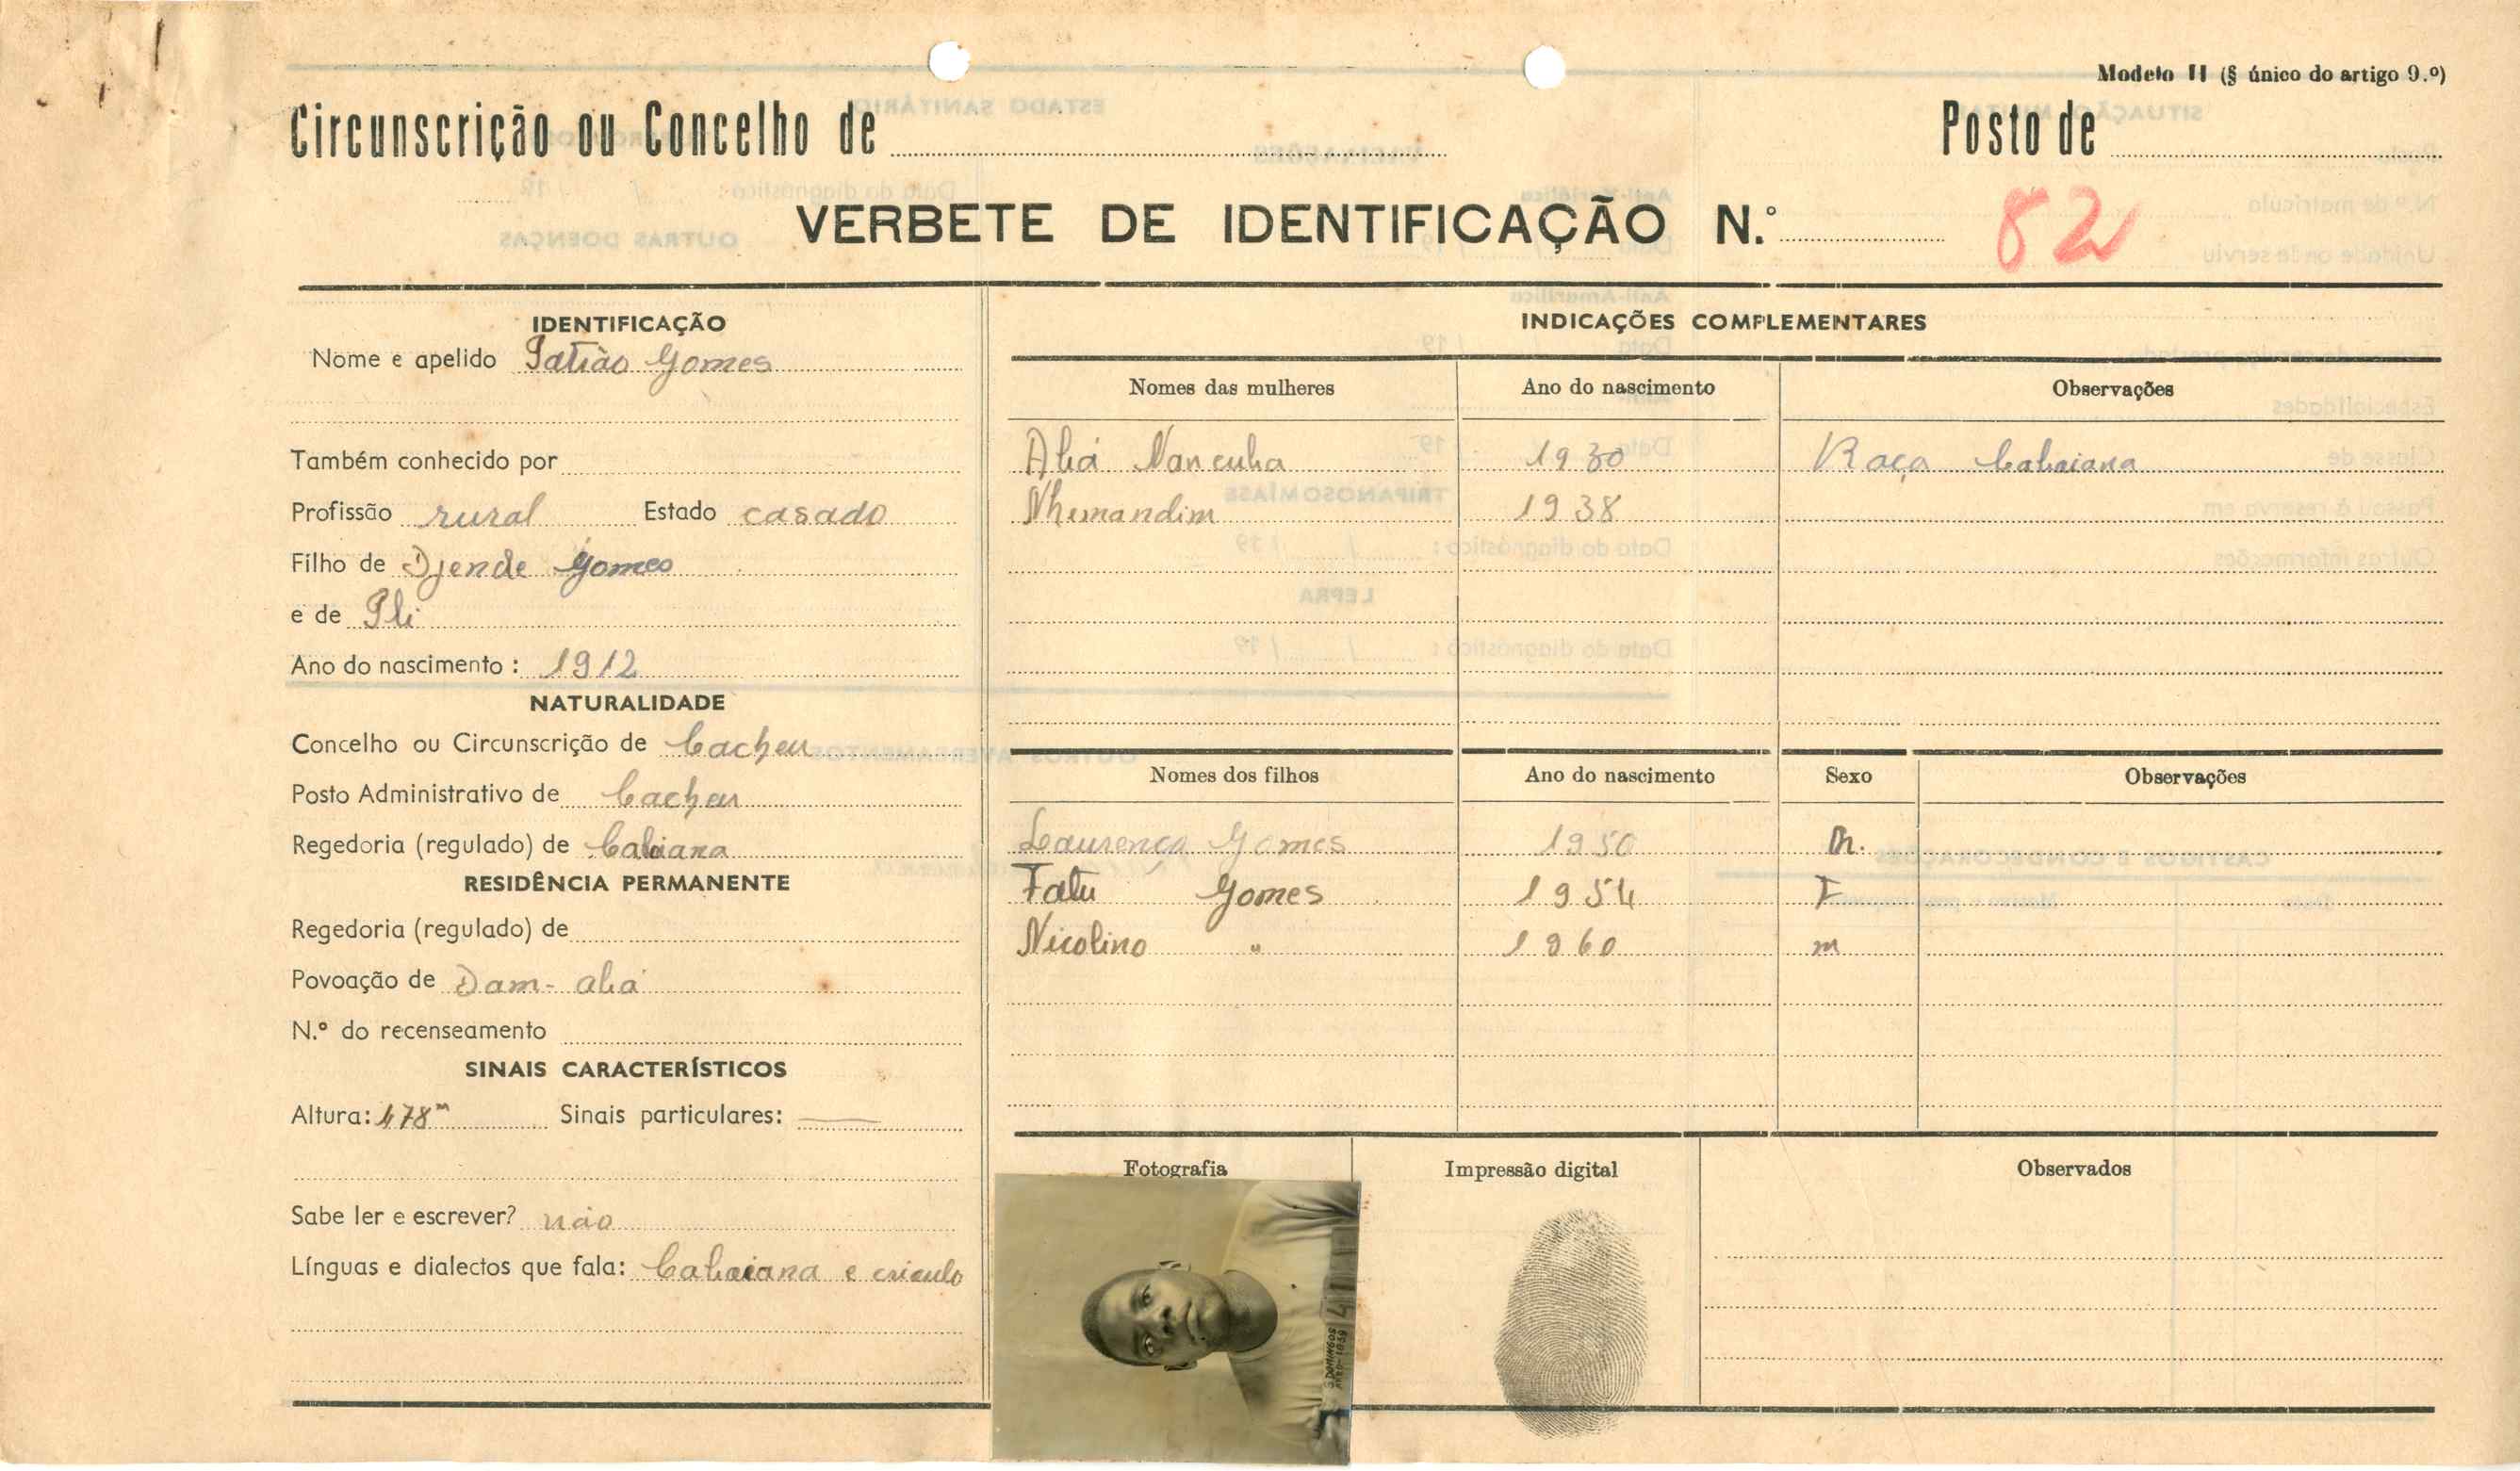 Modelo II (§ único do artigo 9.º)
Circunscrição ou Concelho de
Posto de
VERBETE DE IDENTIFICAÇÃO N.º 82
IDENTIFICAÇÃO
Nome e apelido Gomes
Também conhecido por
Profissão rural Estado casado
Filho de Djende Gomes
e de Pli
Ano do nascimento : 1912
NATURALIDADE
Concelho ou Circunscrição de Cacheu
Posto Administrativo de Cacheu
Regedoria (regulado) de
RESIDÊNCIA PERMANENTE
Regedoria (regulado) de
Povoação de Dam-
N.º do recenseamento
SINAIS CARACTERÍSTICOS
Altura: 178m Sinais particulares:
Sabe ler e escrever? não
Línguas e dialectos que fala: e crioulo
INDICAÇÕES COMPLEMENTARES
Nomes das mulheres Ano do nascimento Observações
1930 Raça
Nhemandim 1938
Nomes dos filhos Ano do nascimento Sexo Observações
Lourença Gomes 1950
Fatu Gomes 1954 F
Nicolino " 1960 m
Fotografia
Impressão digital
Observados
S. DOMINGOS